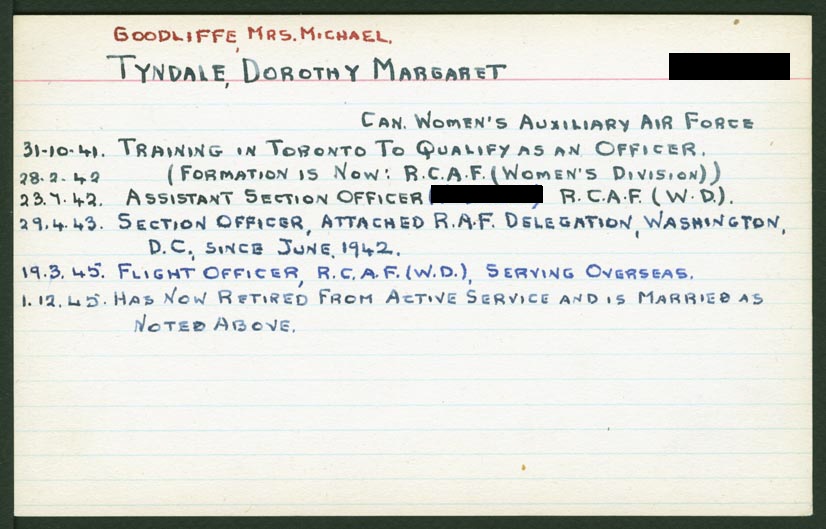 GOODLIFFE, MRS. MICHAEL.
TYNDALE, DOROTHY MARGARET
CAN. WOMEN'S AUXILIARY AIR FORCE
31-10-41. TRAINING IN TORONTO TO QUALIFY AS AN OFFICER.
28.2.42 (FORMATION IS NOW: R.C.A.F. (WOMEN'S DIVISION))
23.7.42. ASSISTANT SECTION OFFICER R.C.A.F. (W.D.).
29.4.43. SECTION OFFICER, ATTACHED R.A.F. DELEGATION, WASHINGTON,
D.C., SINCE JUNE, 1942.
19.3.45. FLIGHT OFFICER, R.C.A.F. (W.D.), SERVING OVERSEAS.
1.12.45. HAS NOW RETIRED FROM ACTIVE SERVICE AND IS MARRIED AS
NOTED ABOVE.